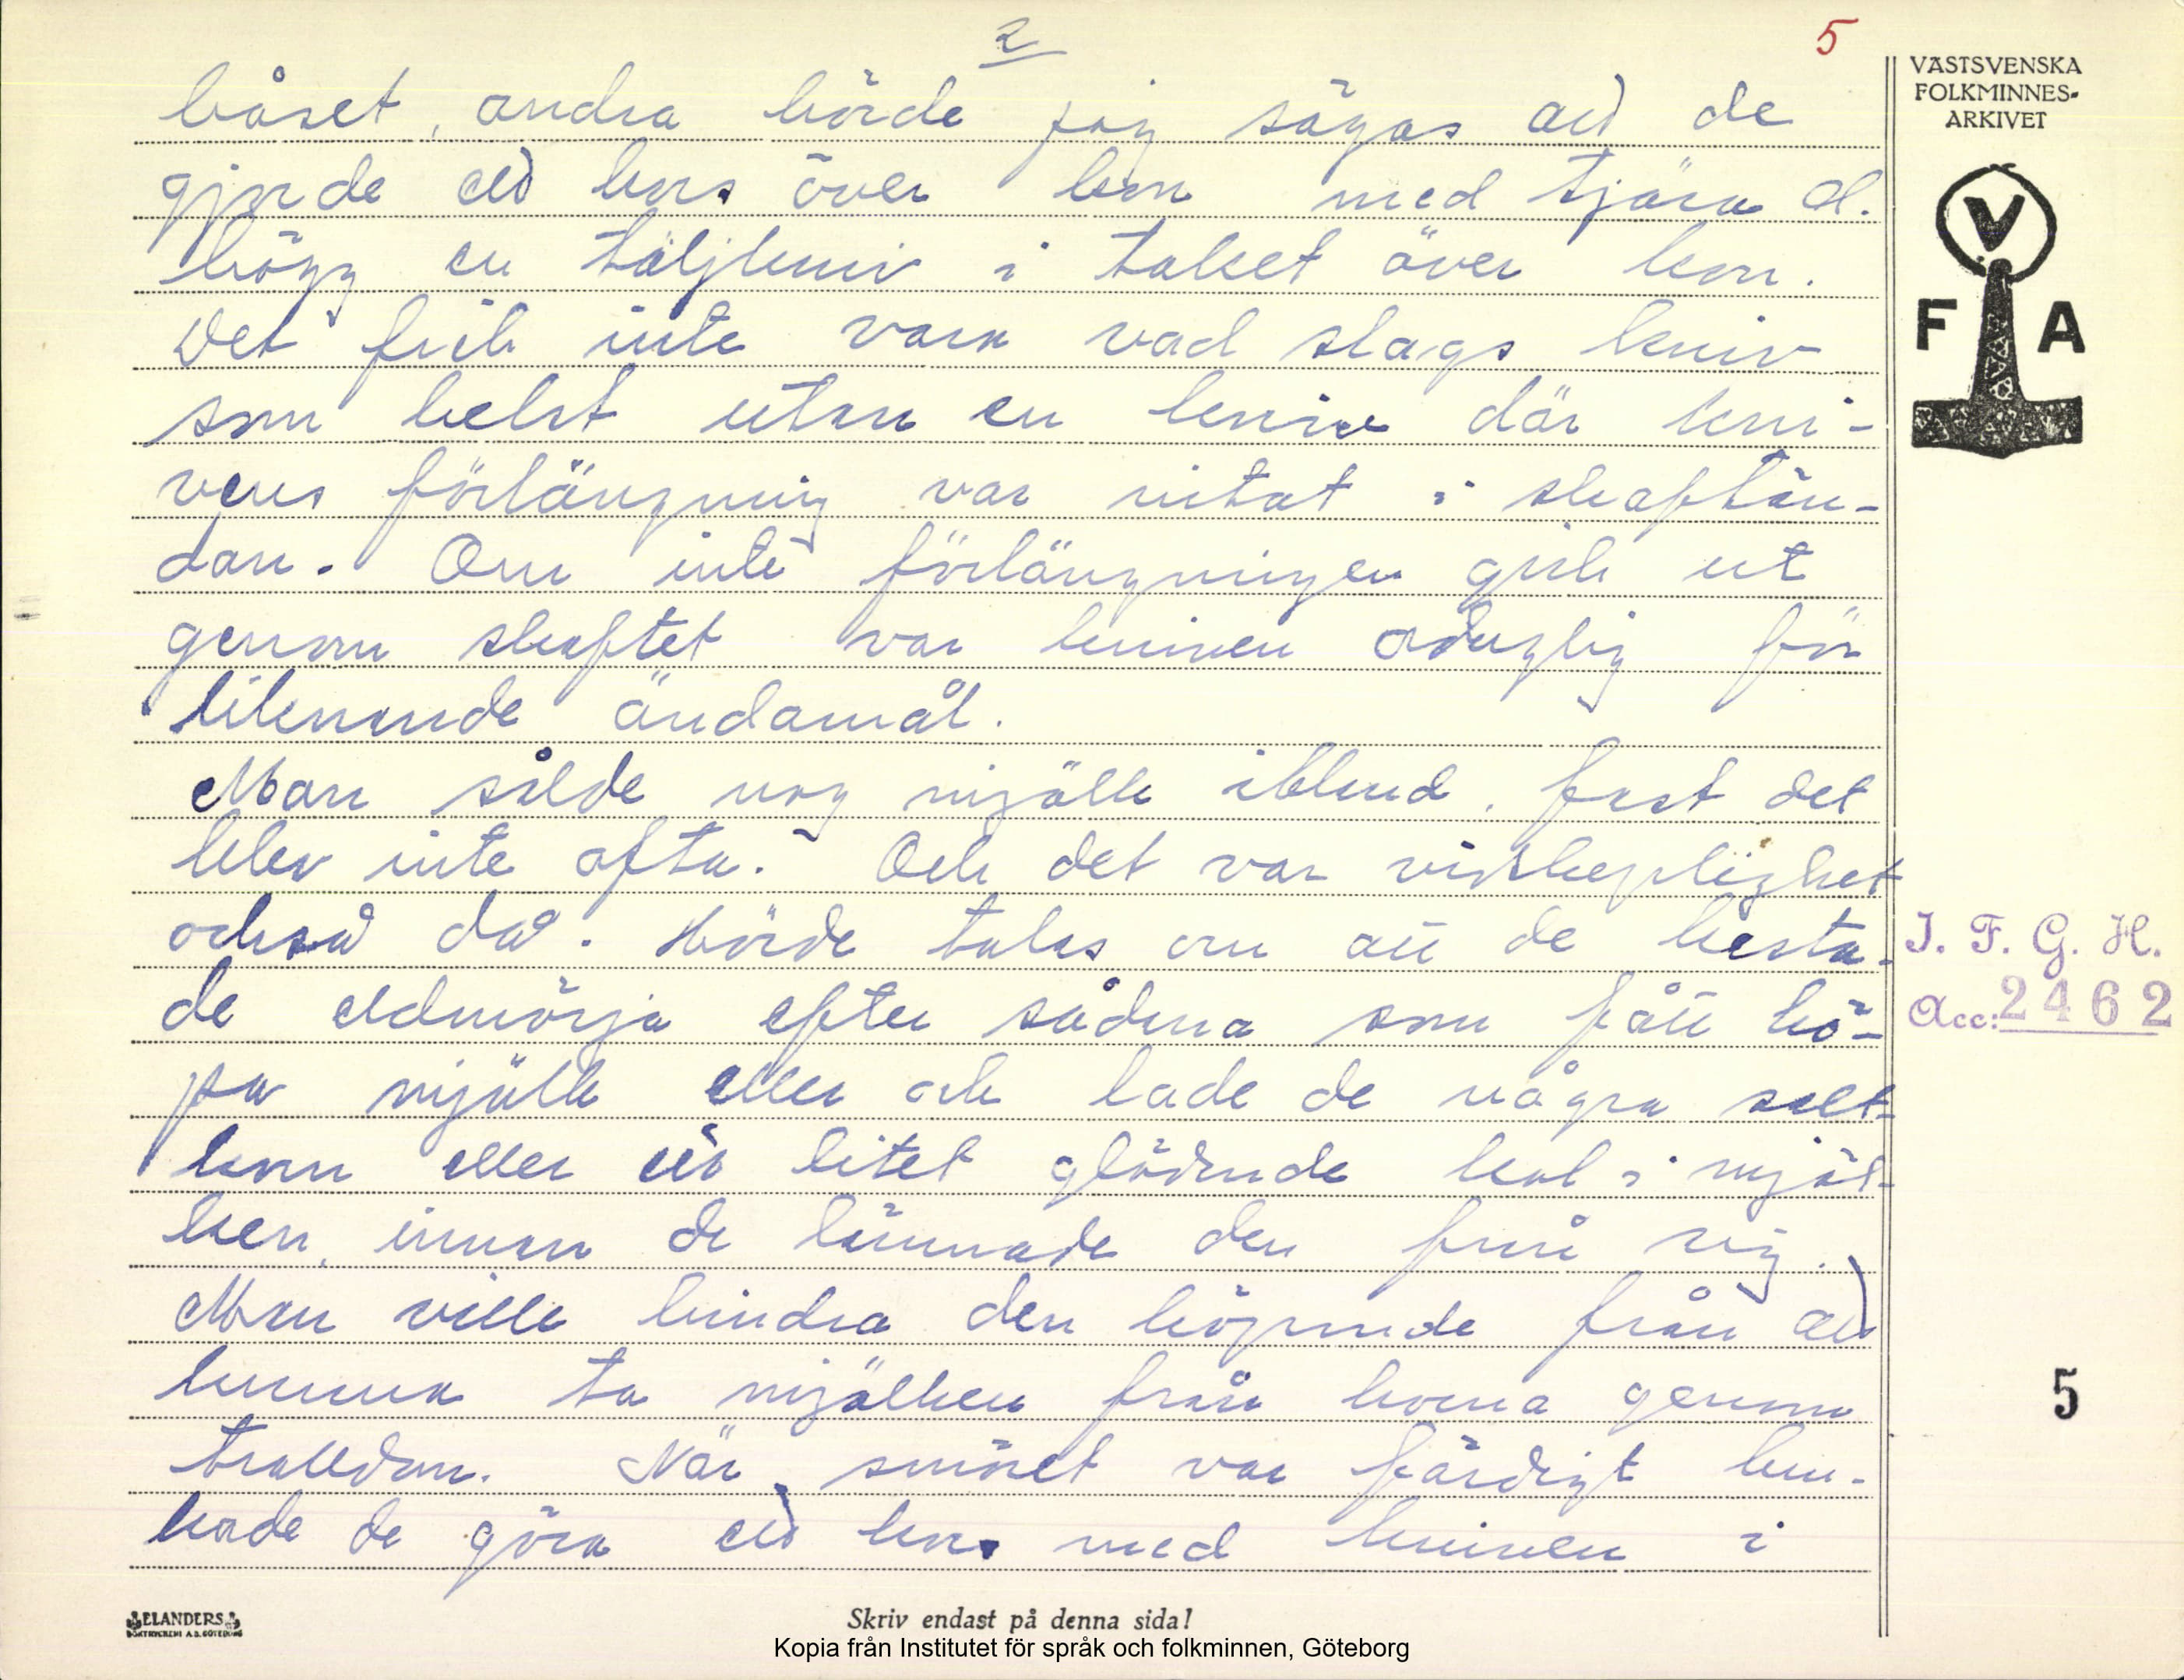 2
5
båset, andra hörde jag sägas att de
gjorde ett kors över kon med tjära el.
högg en täljkniv i taket över kon.
Det fick inte vara vad slags kniv
som helst utan en kniv där kni-
vens förlängning var nitat i skaftän-
dan. Om inte förlängningen gick ut
genom skaftet var kniven oduglig för
liknande ändamål.
Man sålde nog mjölk ibland, fast det
blev inte ofta. Och det var vidskeplighet
också då. Hörde talas om att de kasta-
de eldmörja efter sådana som fått kö-
pa mjölk eller och lade de några salt-
korn eller ett litet glödande kol i mjöl-
ken, innan de lämnade den från sig.
Man ville hindra den köpande från att
kunna ta mjölken från korna genom
trolldom. När smöret var färdigt bru-
kade de göra ett kors med kniven i
VÄSTSVENSKA
FOLKMINNES-
ARKIVET
V
F A
I. F. G. H.
Acc: 2462
5
ELANDERS
BOKTRYCKERI A.B. GÖTEBORG
Skriv endast på denna sida!
Kopia från Institutet för språk och folkminnen, Göteborg